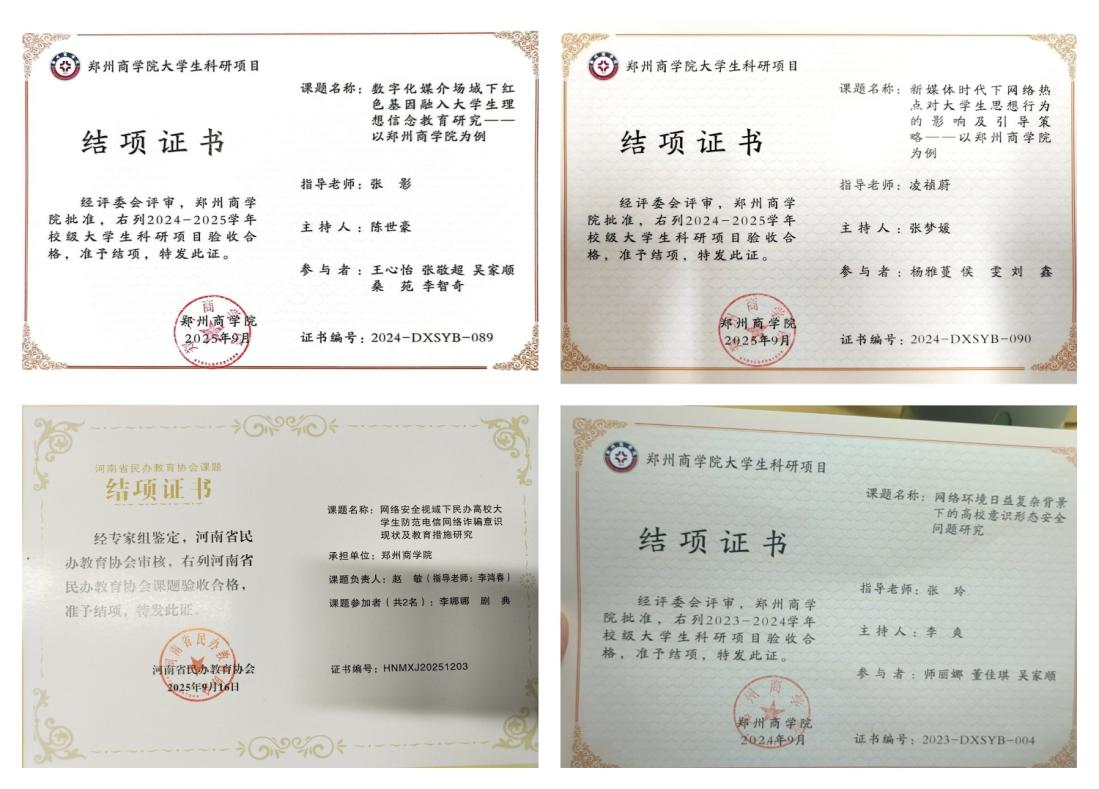 郑州商学院大学生科研项目
结项证书
经评委会评审，郑州商学
院批准，右列2024-2025学年
校级大学生科研项目验收合
格，准予结项，特发此证。
郑州商学院
2025年9月
课题名称：数字化媒介场域下红
色基因融入大学生理
想信念教育研究——
以郑州商学院为例
指导老师：张 影
主持人：陈世豪
参与者：王心怡 张敬超 吴家顺
桑 苑 李智奇
证书编号：2024-DXSYB-089
郑州商学院大学生科研项目
结项证书
经评委会评审，郑州商学
院批准，右列2024-2025学年
校级大学生科研项目验收合
格，准予结项，特发此证。
郑州商学院
2025年9月
课题名称：新媒体时代下网络热
点对大学生思想行为
的影响及引导策
略——以郑州商学院
为例
指导老师：凌祯蔚
主持人：张梦媛
参与者：杨雅蔓 侯 雯 刘 鑫
证书编号：2024-DXSYB-090
河南省民办教育协会课题
结项证书
经专家组鉴定，河南省民
办教育协会审核，右列河南省
民办教育协会课题验收合格，
准予结项，特发此证。
河南省民办教育协会
2025年9月16日
课题名称：网络安全视域下民办高校大
学生防范电信网络诈骗意识
现状及教育措施研究
承担单位：郑州商学院
课题负责人：赵 敏（指导老师：李鸿春）
课题参加者（共2名）：李娜娜 剧 典
证书编号：HNMXJ20251203
郑州商学院大学生科研项目
结项证书
经评委会评审，郑州商学
院批准，右列2023-2024学年
校级大学生科研项目验收合
格，准予结项，特发此证。
郑州商学院
2024年9月
课题名称：网络环境日益复杂背景
下的高校意识形态安全
问题研究
指导老师：张 玲
主持人：李 爽
参与者：师丽娜 董佳琪 吴家顺
证书编号：2023-DXSYB-004